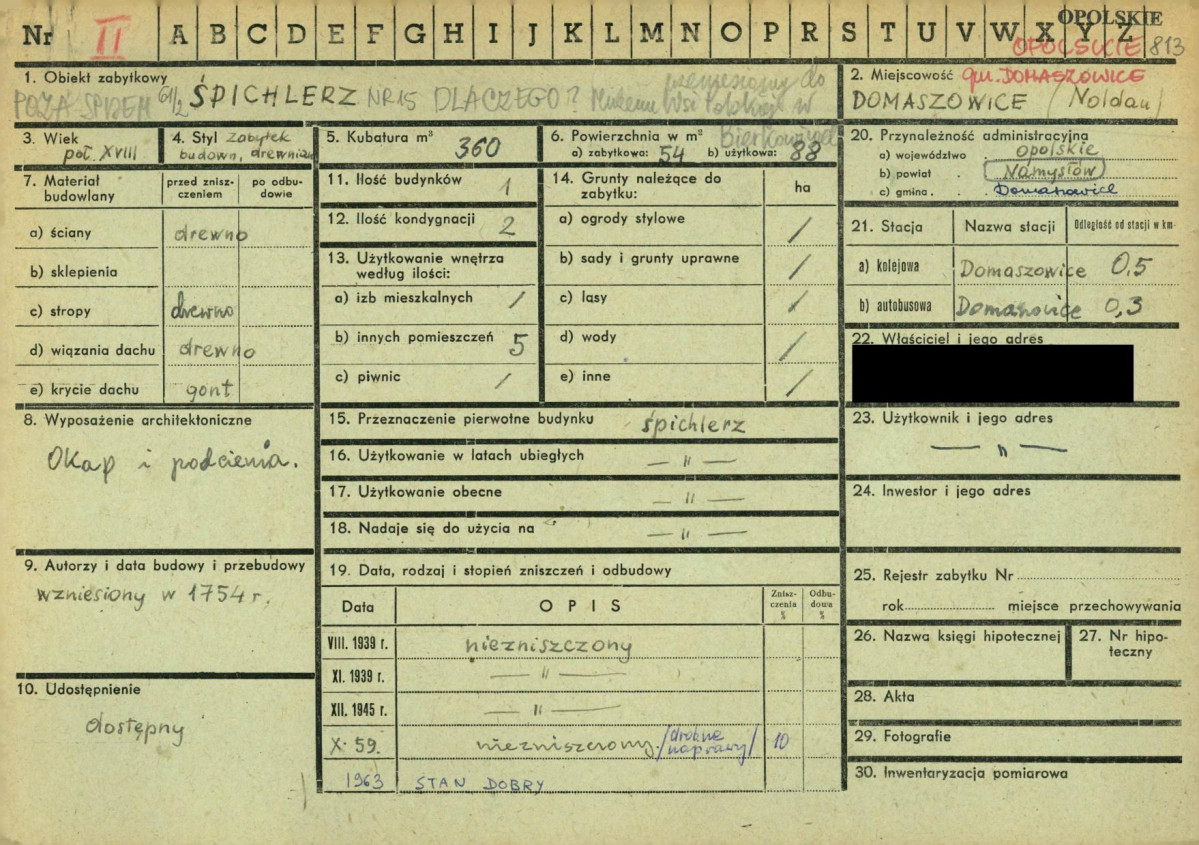 Nr II A B C D E F G H I J K L M N O P R S T U V W X Y Z
OPOLSKIE
OPOLSKIE 813
1. Obiekt zabytkowy
POZA SPISEM 61/2 ŚPICHLERZ NR 15 DLACZEGO?
przeniesiony do
Muzeum Wsi Polskiej w
2. Miejscowość gm. DOMASZOWICE
DOMASZOWICE (Noldau)
3. Wiek
poł. XVIII
4. Styl zabytek
budown. drewnian
5. Kubatura m³ 360
6. Powierzchnia w m²
a) zabytkowa: 54 b) użytkowa: 88
7. Materiał budowlany
przed zniszczeniem
po odbudowie
a) ściany drewno
b) sklepienia
c) stropy drewno
d) wiązania dachu drewno
e) krycie dachu gont
8. Wyposażenie architektoniczne
Okap i podcienia.
9. Autorzy i data budowy i przebudowy
wzniesiony w 1754 r.
10. Udostępnienie
dostępny
11. Ilość budynków 1
12. Ilość kondygnacji 2
13. Użytkowanie wnętrza
według ilości:
a) izb mieszkalnych /
b) innych pomieszczeń 5
c) piwnic /
14. Grunty należące do
zabytku: ha
a) ogrody stylowe /
b) sady i grunty uprawne /
c) lasy /
d) wody /
e) inne /
15. Przeznaczenie pierwotne budynku śpichlerz
16. Użytkowanie w latach ubiegłych — " —
17. Użytkowanie obecne — " —
18. Nadaje się do użycia na — " —
19. Data, rodzaj i stopień zniszczeń i odbudowy
Data OPIS Zniszczenia % Odbudowa %
VIII. 1939 r. niezniszczony
XI. 1939 r. — " —
XII. 1945 r. — " —
X. 59. niezniszczony. /drobne naprawy/ 10
1963 STAN DOBRY
20. Przynależność administracyjna
a) województwo opolskie
b) powiat . Namysłów
c) gmina . Domaszowice
21. Stacja Nazwa stacji Odległość od stacji w km
a) kolejowa Domaszowice 0,5
b) autobusowa Domaszowice 0,3
22. Właściciel i jego adres
23. Użytkownik i jego adres
— " —
24. Inwestor i jego adres
25. Rejestr zabytku Nr
rok miejsce przechowywania
26. Nazwa księgi hipotecznej
27. Nr hipoteczny
28. Akta
29. Fotografie
30. Inwentaryzacja pomiarowa